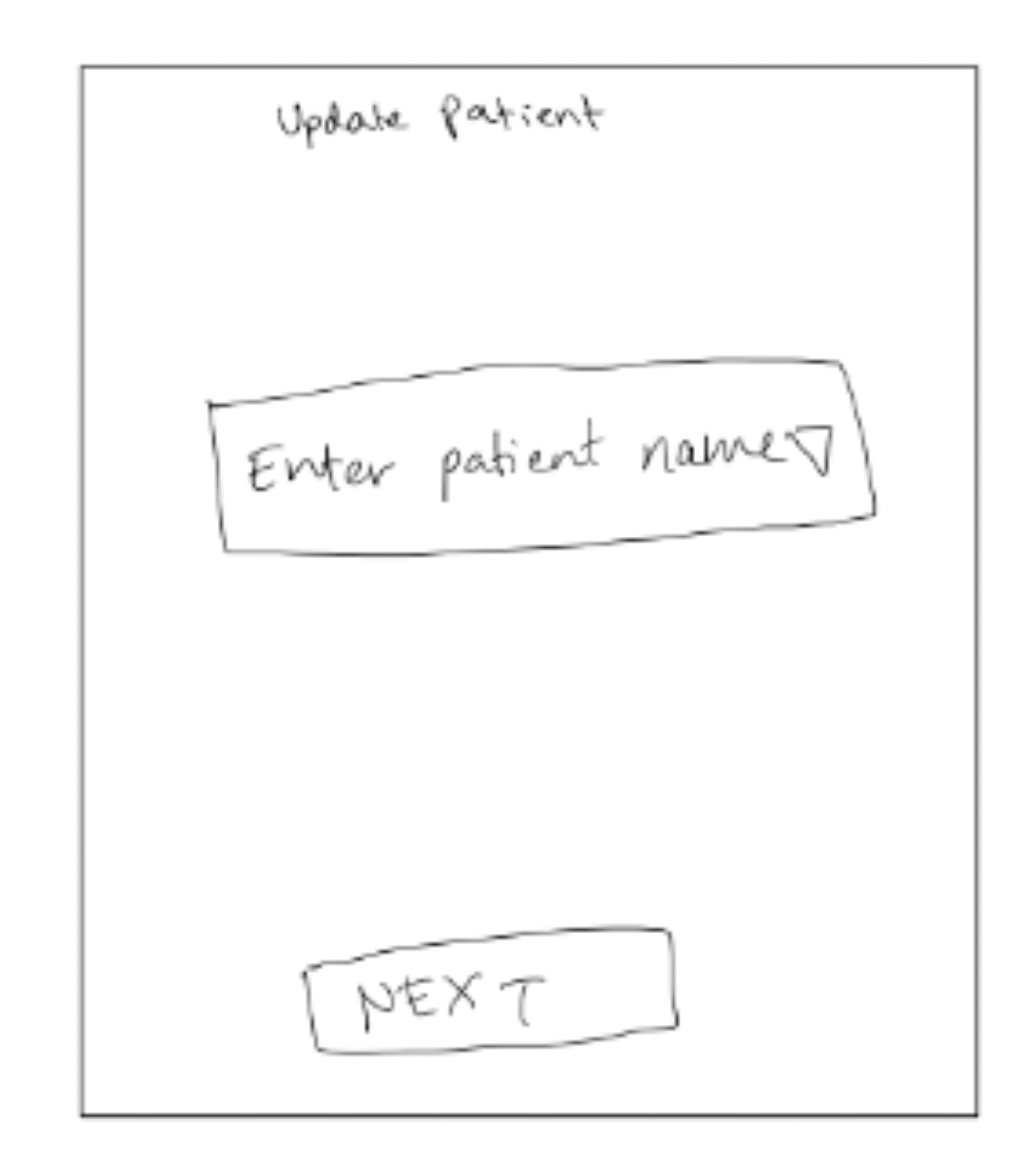 Update Patient
Enter patient name
NEXT